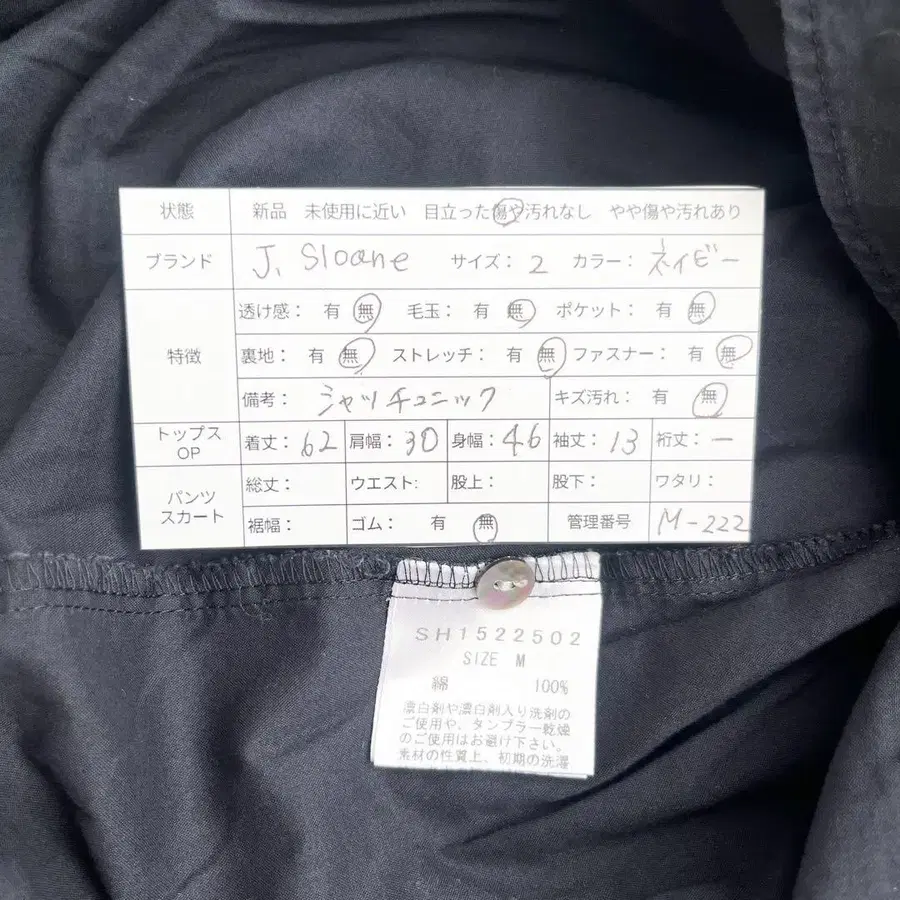 状態 新品 未使用に近い 目立った傷や汚れなし やや傷や汚れあり
ブランド J. Sloane サイズ： 2 カラー： ネイビー
特徴
透け感： 有 無 毛玉： 有 無 ポケット： 有 無
裏地： 有 無 ストレッチ： 有 無 ファスナー： 有 無
備考： シャツチュニック キズ汚れ： 有 無
トップス OP 着丈： 62 肩幅： 30 身幅： 46 袖丈： 13 裄丈： ー
パンツ スカート
総丈： ウエスト: 股上： 股下： ワタリ：
裾幅： ゴム： 有 無 管理番号 M-222
SH1522502
SIZE M
綿 100%
漂白剤や漂白剤入り洗剤の
ご使用や、タンブラー乾燥
のご使用はお避け下さい。
素材の性質上、初期の洗濯